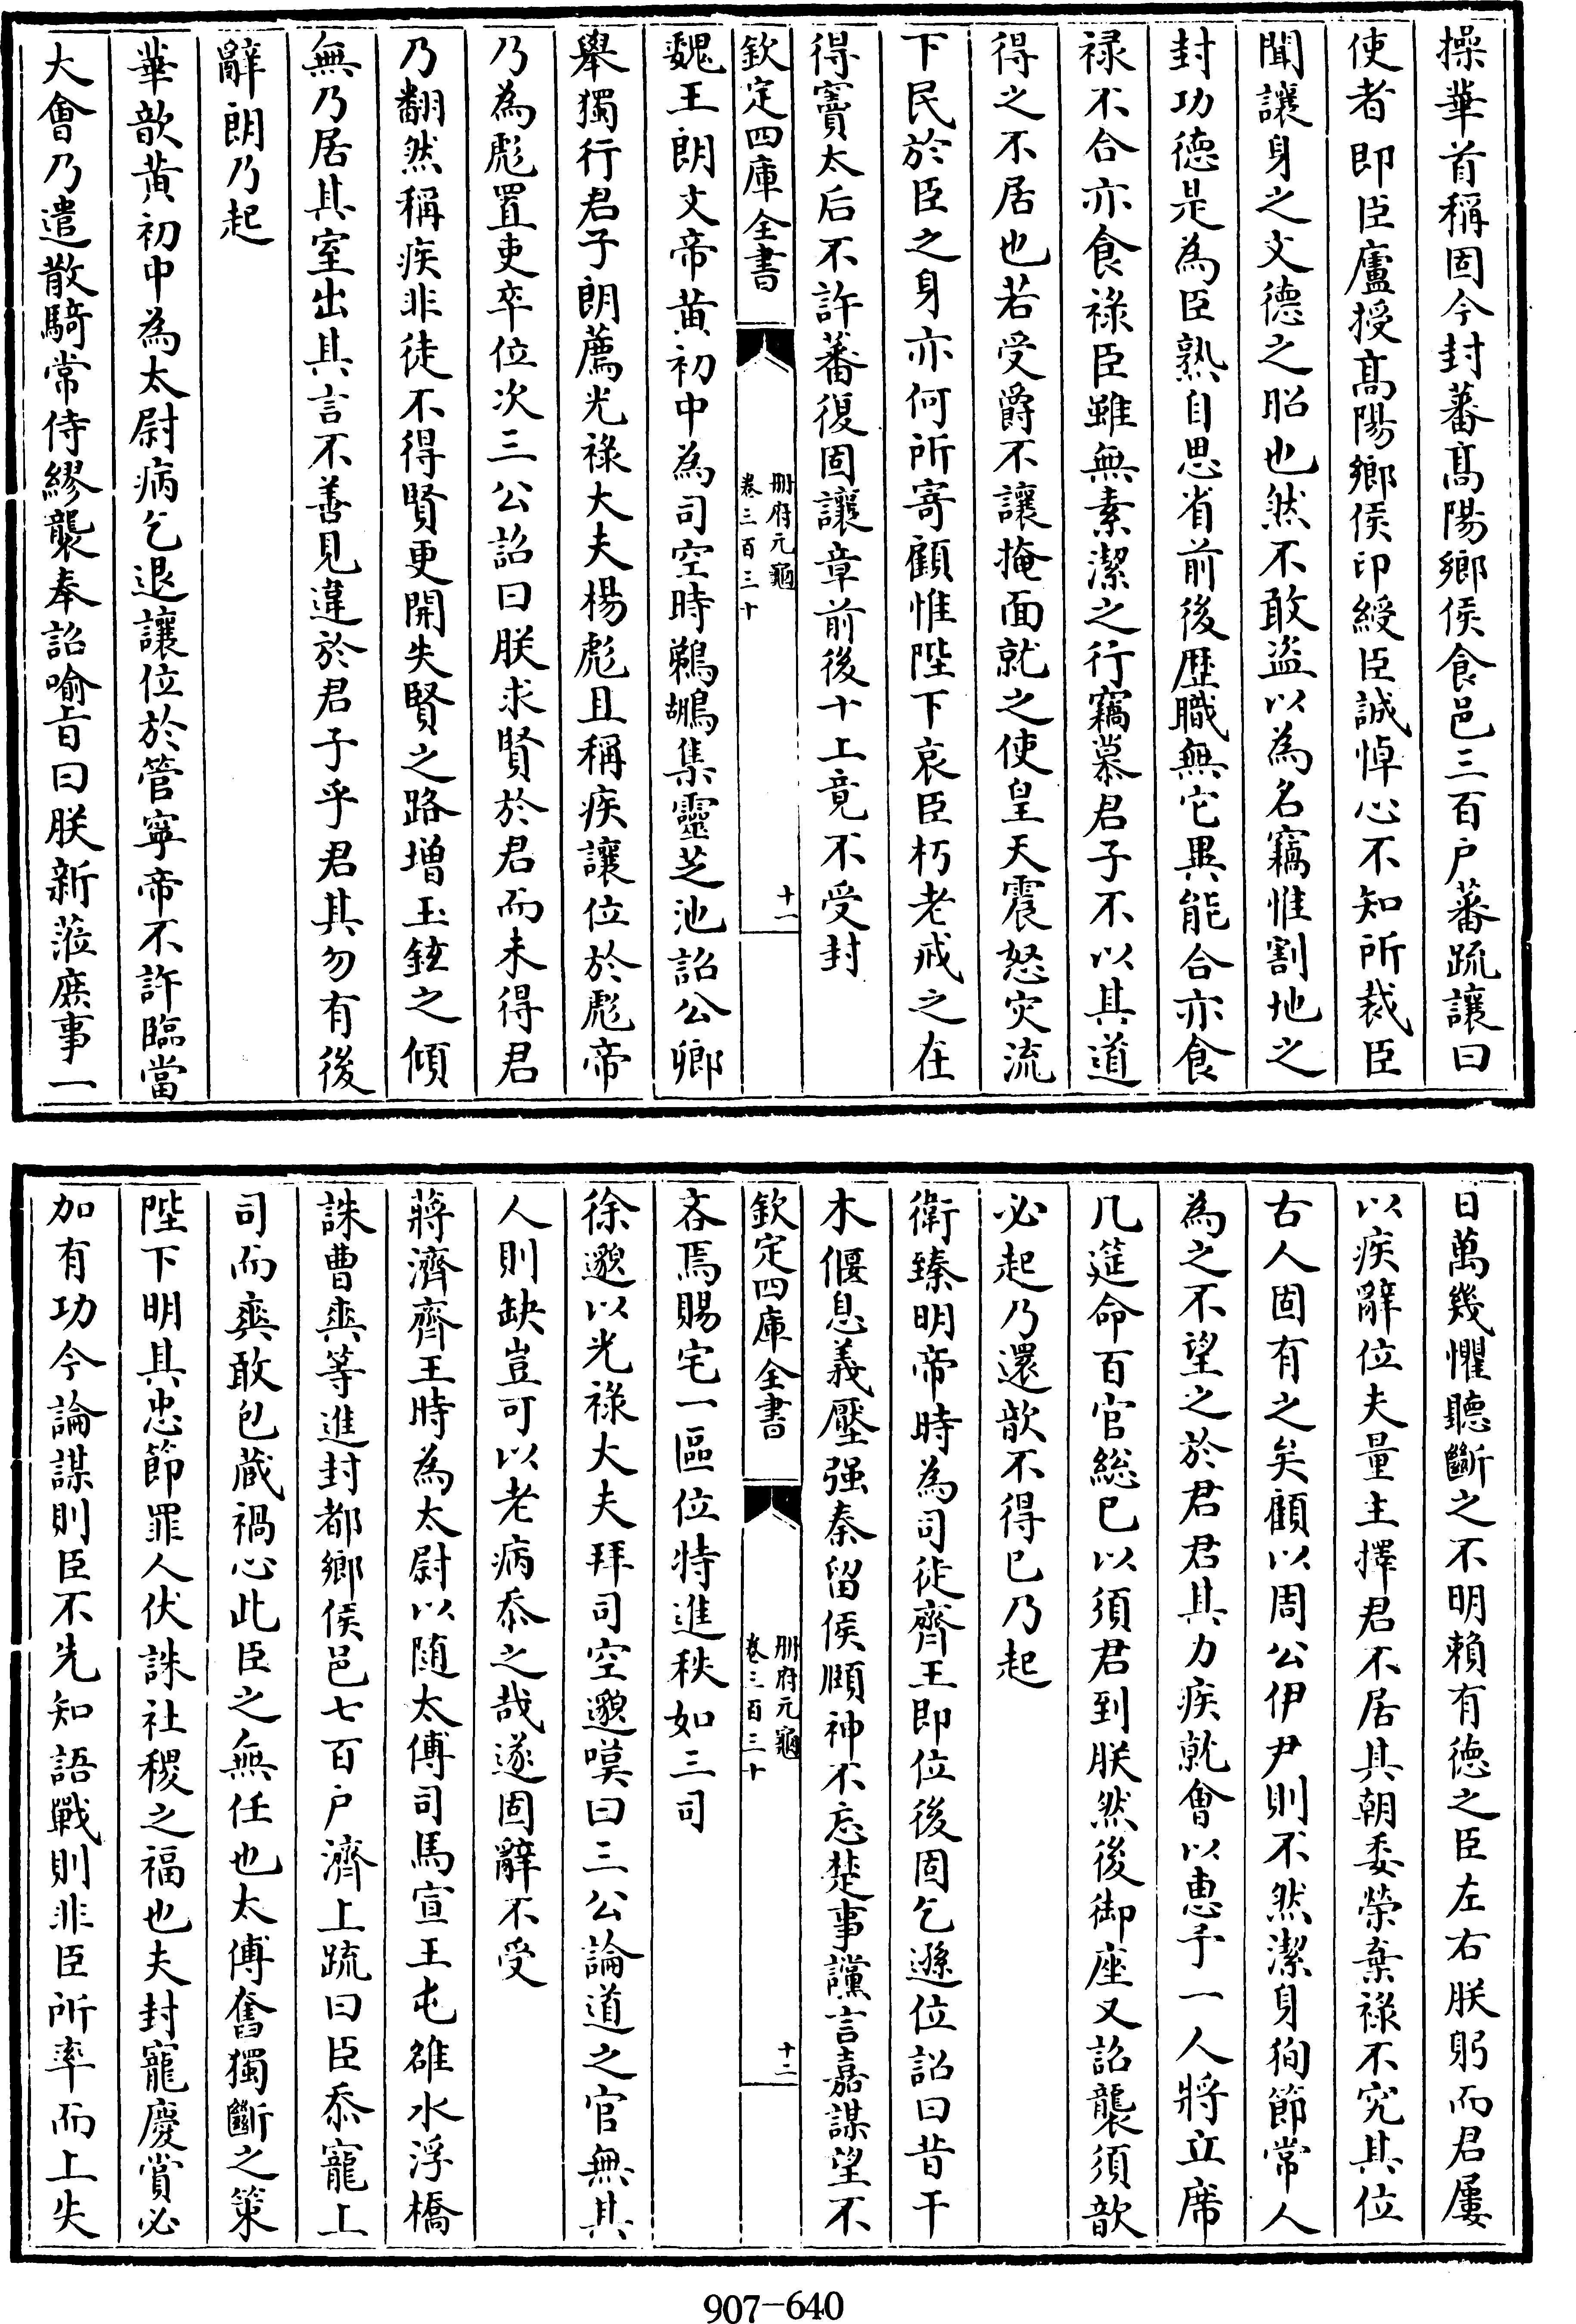 操華首稱固今封蕃髙陽鄉侯食邑三百户蕃疏讓曰
使者即臣廬授髙陽鄉侯印綬臣誠悼心不知所裁臣
聞讓身之文徳之昭也然不敢盗以為名竊惟割地之
封功徳是為臣熟自思省前後歴職無它異能合亦食
禄不合亦食禄臣雖無素潔之行竊慕君子不以其道
得之不居也若受爵不讓掩面就之使皇天震怒灾流
下民於臣之身亦何所寄顧惟陛下哀臣朽老戒之在
得竇太后不許蕃復固讓章前後十上竟不受封
欽定四庫全書
册府元龜
卷三百三十
十一
魏王朗文帝黄初中為司空時鵜鶘集靈芝池詔公卿
舉獨行君子朗薦光禄大夫楊彪且稱疾讓位於彪帝
乃為彪置吏卒位次三公詔曰朕求賢於君而未得君
乃翻然稱疾非徒不得賢更開失賢之路增玉鉉之傾
無乃居其室出其言不善見違於君子乎君其勿有後
辭朗乃起
華歆黄初中為太尉病乞退讓位於管寧帝不許臨當
大會乃遣散騎常侍繆襲奉詔喻㫖曰朕新蒞庶事一
日萬幾懼聽斷之不明賴有徳之臣左右朕躬而君屢
以疾辭位夫量主擇君不居其朝委榮棄祿不究其位
古人固有之矣顧以周公伊尹則不然潔身狥節常人
為之不望之於君君其力疾就會以惠予一人將立席
几筵命百官総已以須君到朕然後御座又詔襲須歆
必起乃還歆不得已乃起
衛臻明帝時為司徒齊王即位後固乞遜位詔曰昔干
木偃息義壓强秦留侯頤神不忘楚事讜言嘉謀望不
吝焉賜宅一區位特進秩如三司
欽定四庫全書
册府元龜
卷三百三十
十二
徐邈以光禄大夫拜司空邈嘆曰三公論道之官無其
人則缺豈可以老病忝之哉遂固辭不受
蔣濟齊王時為太尉以随太傅司馬宣王屯雒水浮橋
誅曹爽等進封都鄉侯邑七百户濟上疏曰臣忝寵上
司而爽敢包蔵禍心此臣之無任也太傅奮獨斷之策
陛下明其忠節罪人伏誅社稷之福也夫封寵慶賞必
加有功今論謀則臣不先知語戰則非臣所率而上失
907-640